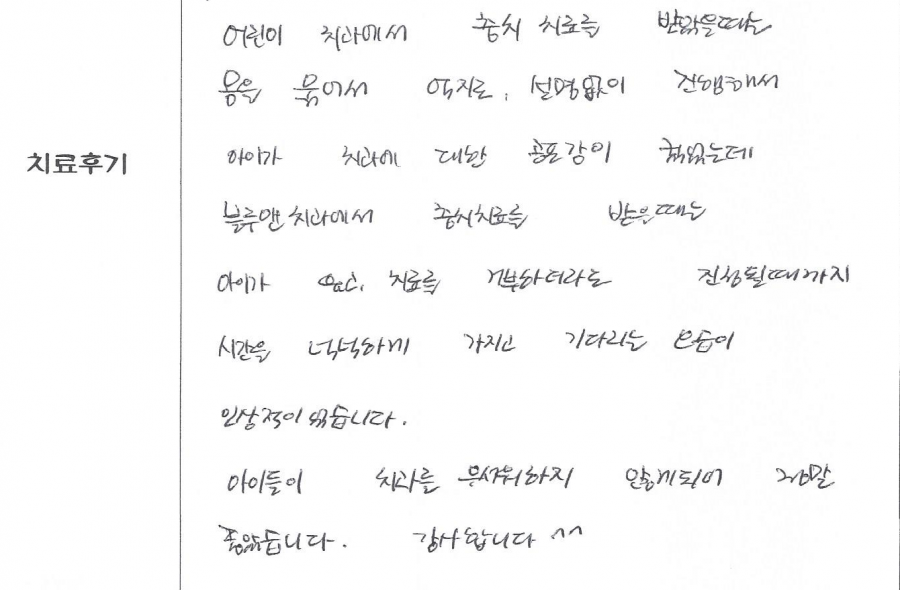 어린이 치과에서 충치 치료를 받았을때는
몸을 묶어서 억지로, 설명없이 진행해서
치료후기
아이가 치과에 대한 공포감이 컸었는데
블루앤치과에서 충치치료를 받을때는
아이가 치료를 거부하더라도 진정될때까지
시간을 넉넉하게 가지고 기다리는 모습이
인상적이었습니다.
아이들이 치과를 무서워하지 않게되어 정말
좋았습니다. 감사합니다 ^^